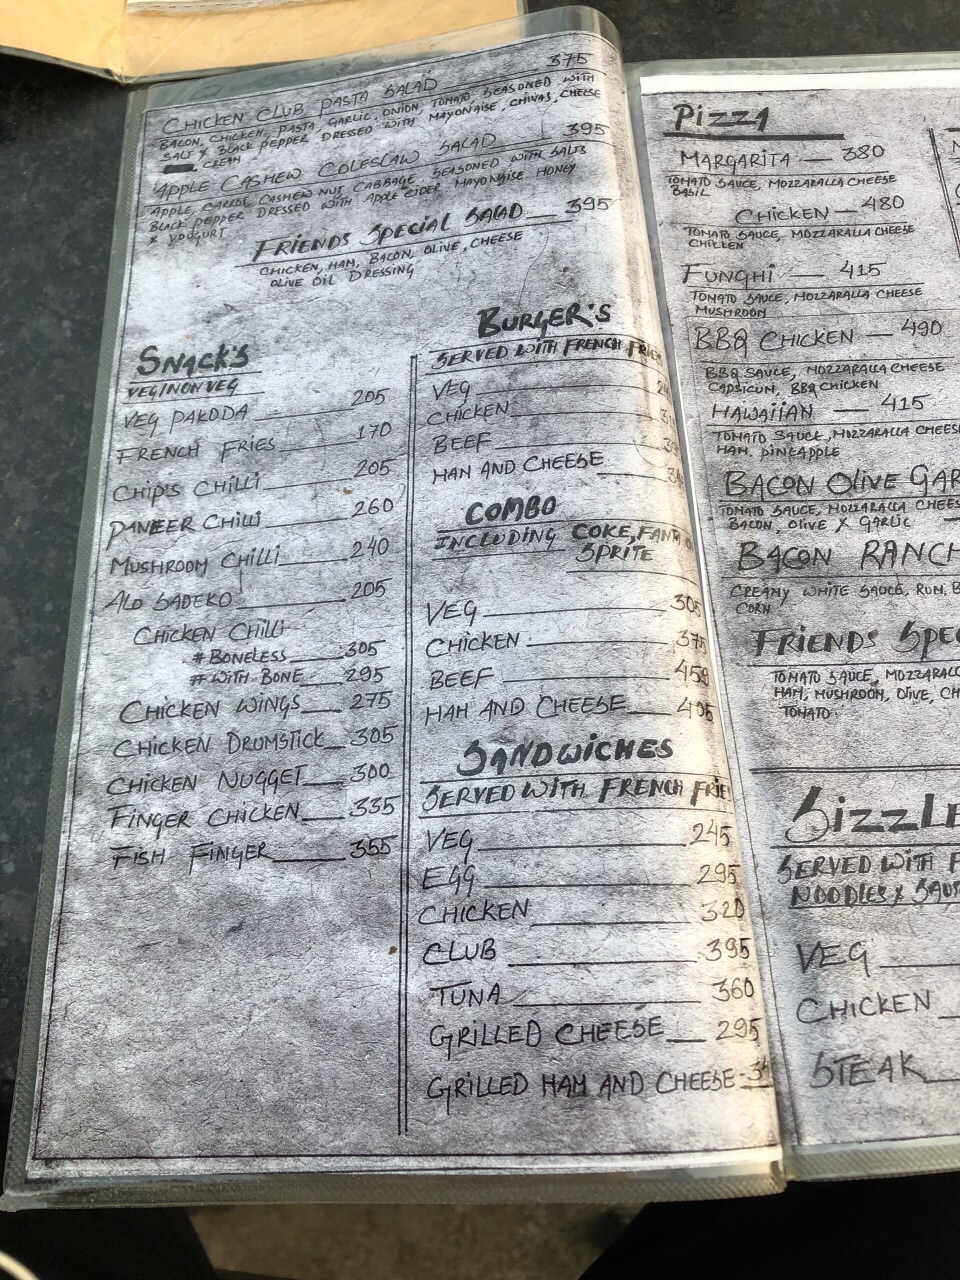 CHICKEN CLUB PASTA SALAD 375
BACON, CHICKEN, PASTA, GARLIC, ONION, TOMATO, SEASONED WITH
SALT & BLACK PEPPER DRESSED WITH MAYONAISE, CHIVAS, CHEESE
CREAM
APPLE CASHEW COLESLAW SALAD 395
APPLE, CARROT, CASHEW NUT CABBAGE SEASONED WITH SALTS
BLACK PEPPER DRESSED WITH APPLE CIDER MAYONAISE HONEY
& YOUGURT
FRIENDS SPECIAL SALAD 395
CHICKEN, HAM, BACON, OLIVE, CHEESE
OLIVE OIL DRESSING
SNACK'S
VEG/NON VEG
VEG PAKODA 205
FRENCH FRIES 170
CHIPS CHILLI 205
PANEER CHILLI 260
MUSHROOM CHILLI 240
ALO SADEKO 205
CHICKEN CHILLI
# BONELESS 305
# WITH BONE 295
CHICKEN WINGS 275
CHICKEN DRUMSTICK 305
CHICKEN NUGGET 300
FINGER CHICKEN 335
FISH FINGER 355
BURGER'S
SERVED WITH FRENCH
VEG
CHICKEN
BEEF
HAM AND CHEESE
COMBO
INCLUDING COKE,
SPRITE
VEG 305
CHICKEN 375
BEEF
HAM AND CHEESE 405
SANDWICHES
SERVED WITH FRENCH FRIE
VEG 245
EGG 295
CHICKEN 320
CLUB 395
TUNA 360
GRILLED CHEESE 295
GRILLED HAM AND CHEESE
PIZZA
MARGARITA — 380
TOMATO SAUCE, MOZZARALLA CHEESE
BASIL
CHICKEN — 480
TOMATO SAUCE, MOZZARALLA CHEESE
CHICKEN
FUNGHI — 415
TOMATO SAUCE, MOZZARALLA CHEESE
MUSHROOM
BBQ CHICKEN — 490
BBQ SAUCE, MOZZARALLA CHEESE
CAPSICUM, BBQ CHICKEN
HAWAIIAN — 415
TOMATO SAUCE, MOZZARALLA CHEESE
HAM, PINEAPPLE
BACON OLIVE GAR
TOMATO SAUCE, MOZZARALLA CHEES
BACON, OLIVE & GARLIC
BACON RANCH
CREAMY WHITE SAUCE,
CORN
FRIENDS SPEC
TOMATO SAUCE, MOZZARAL
HAM, MUSHROOM, OLIVE, CH
TOMATO
SIZZLE
SERVED WITH F
NOODLES &
VEG
CHICKEN
STEAK